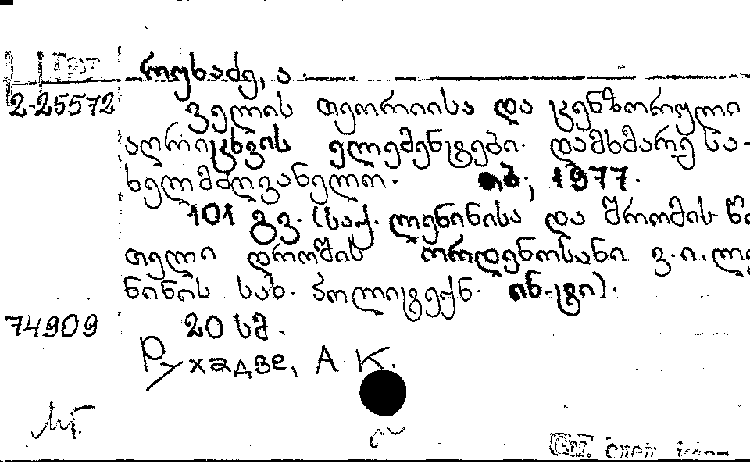 რუხაძე, ა
2-25572 ველის თეორიისა და ტენზორული
აღრიცხვის ელემენტები. დამხმარე სა-
ხელმძღვანელო. თბ., 1977.
101 გვ. (საქ. ლენინისა და შრომის წი
თელი დროშის ორდენოსანი ვ. ი. ლე
ნინის სახ. პოლიტექნ. ინ-ტი).
74909 20 სმ.
Рухадзе, А. К.